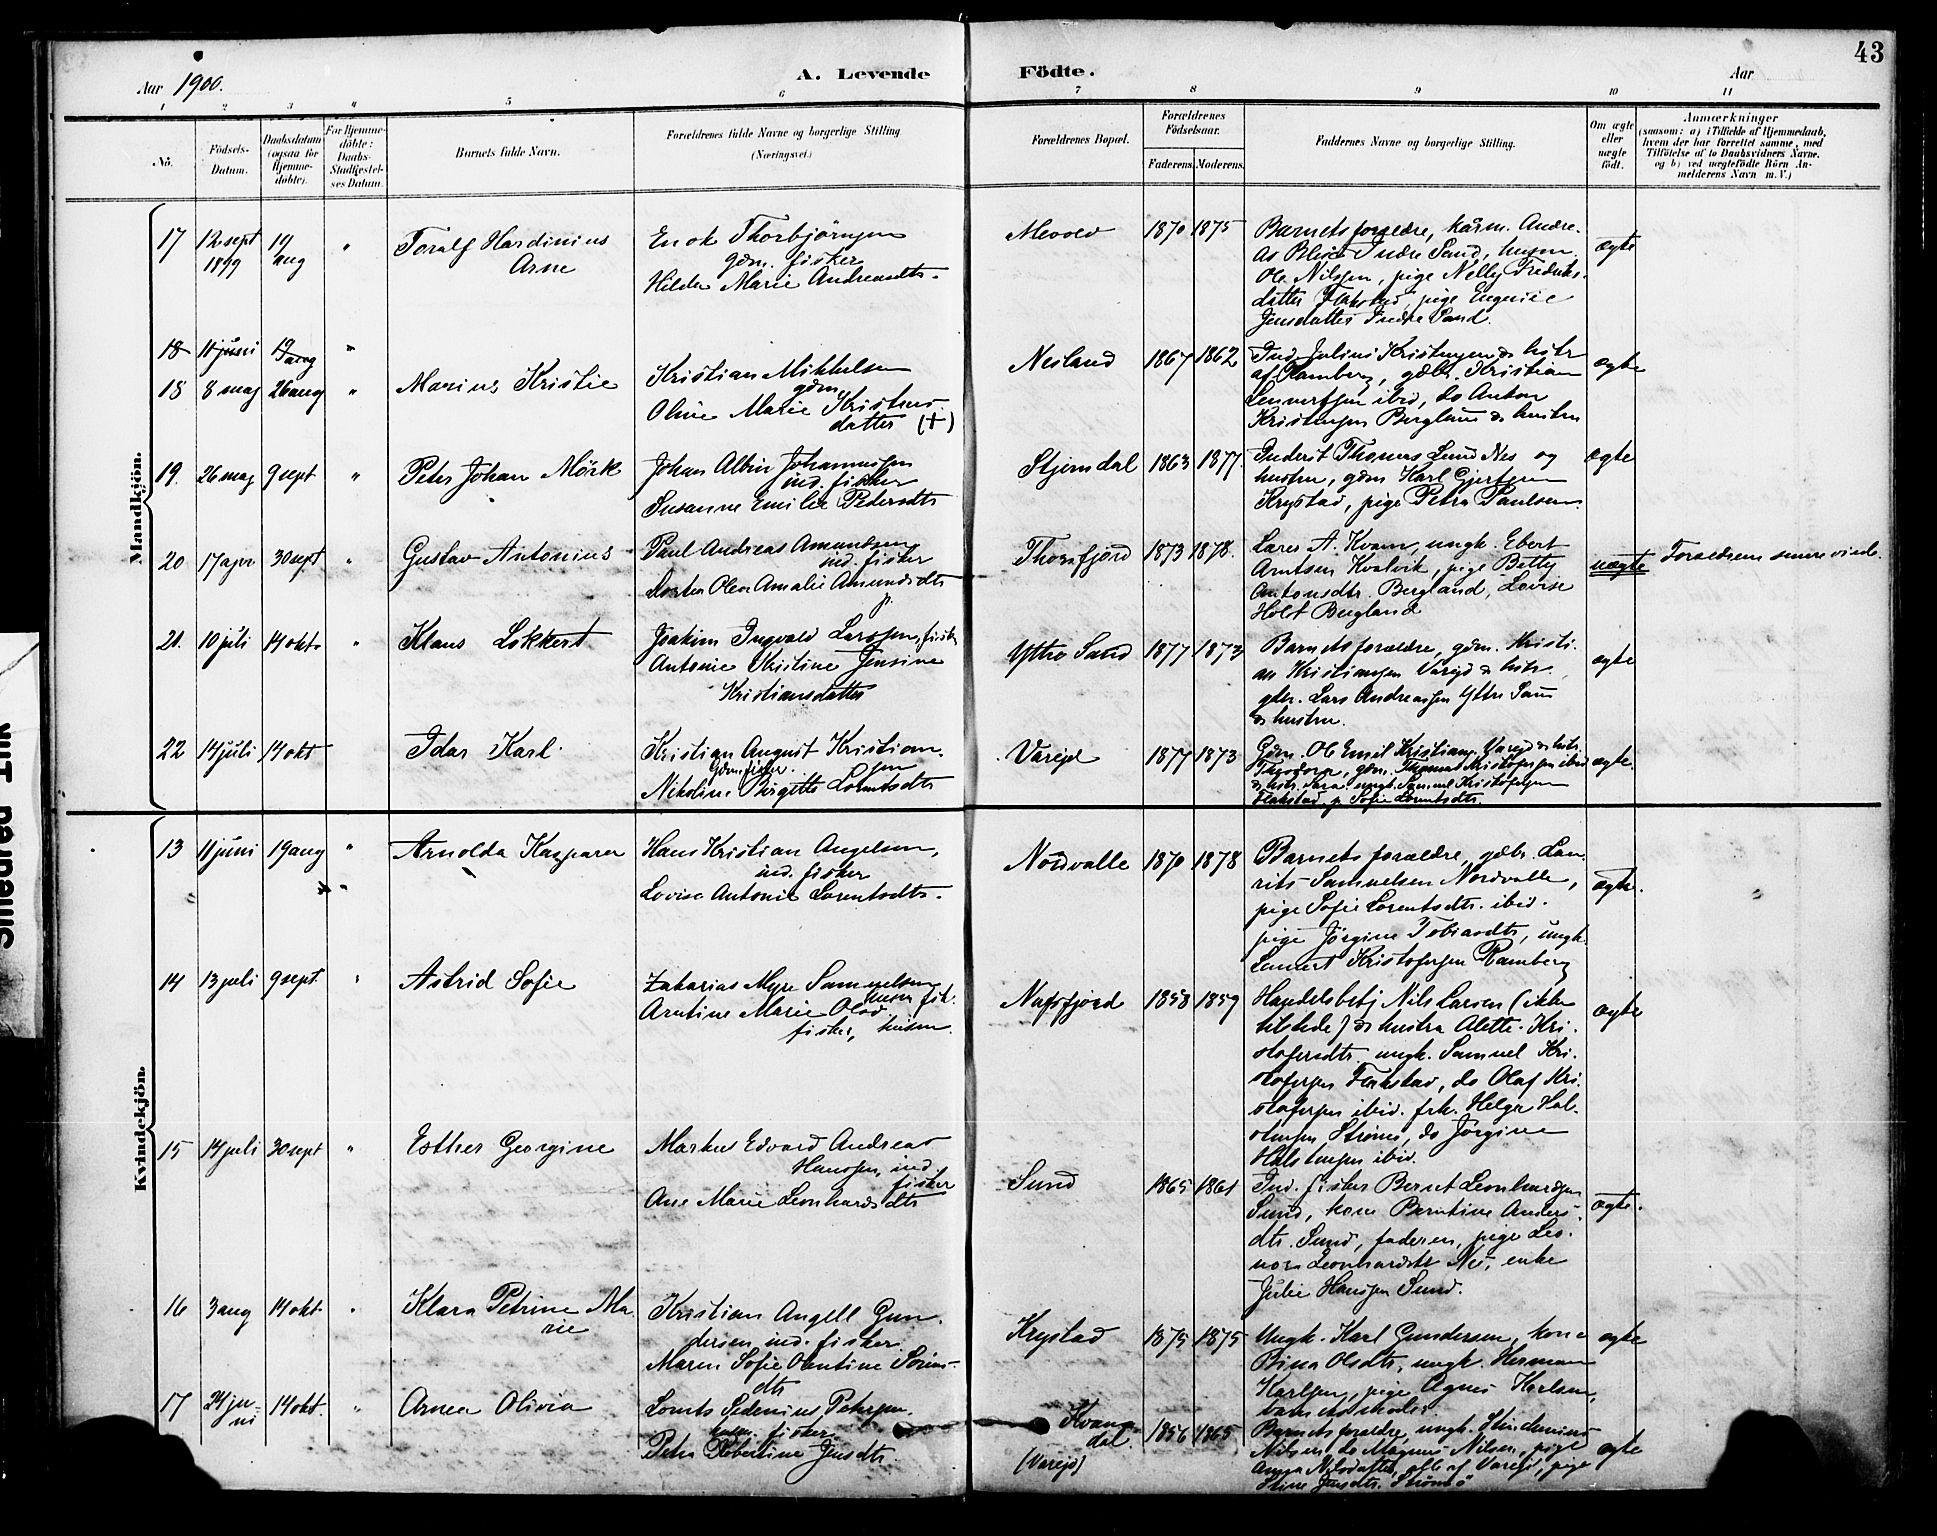 43
Aar 1900.
A. Levende Födte.
Aar
1 2 3 4 5 6 7 8 9 10 11
No.
Födsels-
Datum.
Daabsdatum
(ogsaa for
Hjemme-
døbte).
For Hjemme-
döbte:
Daabs-
Stadfæstel-
ses Datum.
Barnets fulde Navn.
Forældrenes fulde Navne og borgerlige Stilling
(Næringsvei.)
Forældrenes Bopæl.
Forældrenes
Födselsaar.
Faderens. Moderens.
Faddernes Navne og borgerlige Stilling.
Om ægte
eller
uægte
födt.
Anmærkninger
(saasom: a) i Tilfælde af Hjemmedaab,
hvem der har forrettet samme, med
Tilföielse af to Daabsvidners Navne.
og b) ved uægtefödte Börn An-
melderens Navn m. V.)
Mandkjön.
17 12 sept 1899 19 aug " Toralf Hardinius
Arne
Enok Thorbjörnsen
gdm. fisker
Hilda Marie Andreasdtr.
1870 1875
Barnets forældre, kårm. Andre-
as Blix Indre Sand, husm.
Ole Nilssen, pige Nelly Fredriks-
datter Flakstad, pige Eugenie
Jensdatter Indre Sand.
ægte
18 11 juni 19 aug "
18 8 maj 26 aug " Marius Kristie
Kristian Mikkelsen
gdm.
Oline Marie Kristens-
datter (+)
Nesland 1867 1862
Ind. Julius Kristensen & hstr
af Ramberg, gdbr. Kristian
Lennertsen ibid, do Anton
Kristensen Bergland & hustru
ægte
19. 26 maj 9 sept " Peter Johan Mörk
Johan Albin Johannessen
ind. fisker
Susanne Emilie Pedersdtr
Stjerndal 1863 1877.
Inderst Thomas Lund Nes og
hustru, gdm Karl Gjertsen
Krystad, pige Petra Paulsen.
ægte
20 17 apr 30 sept " Gustav Antonius
Paul Andreas Amundsen
ind. fisker
Dortea Olea Amalie Amundsdtr
p.
Thorsfjord 1873 1878.
Lars A. Kvam, ungk. Ebert
Arntsen Kvalvik, pige Betty
Antonsdtr. Bergland, Lovise
Holt Bergland
uægte
21. 10 juli 14 okt. " Klaus Lokkert
Joakim Ingvald Larssen, fisker
Antonie Kristine Jensine
Kristiansdatter
Yttre Sand 1877 1873
Barnets forældre, gdm. Kristi-
an Kristiansen Varejd & hstr.
gbr. Lars Andreassen Yttre Sand
& hustru.
ægte
22 14 juli 14 okt Idar Karl
Kristian August Kristian-
sen
gdm. fisker.
Nikoline Birgitte Lorentsdtr
Varejd 1877 1873
Gdm. Ole Emil Kristians. Varejd & hstr.
Theodora, gdm. Thomas Kristofersen ibid
& hstr. Sara ungk. Samuel Kristofersen
Flakstad p. Sofie Lorentsdtr.
ægte.
Kvindekjön.
13 11 juni 19 aug " Arnolda Kaspara
Hans Kristian Angelsen,
ind. fisker
Lovise Antonie Lorentsdtr.
Nordvalle 1870 1878
Barnets forældre, gdbr. Lau-
rits Samuelsen Nordvalle,
pige Sofie Lorentsdtr. ibid.
pige Jörgine Tobiasdtr, ungk.
Lennert Kristofersen Ramberg
ægte.
14 13 juli 9 sept. " Astrid Sofie
Zakarias Myre Samuelsen
husm. fisk.
Arntine Marie Olsd.
fisker, husm.
Nufsfjord 1858 1859
Handelsbetj Nils Larsen (ikke
tilstede) & hustru Alette Kri-
stofersdtr. ungk. Samuel Kri-
stofersen Flakstad, do Olaf Kri-
stofersen ibid. frk. Helga Hal-
stensen Strømø, do Jørgine
Halstensen ibid.
ægte
15 14 juli 30 sept " Esther Georgine
Markus Edvard Andreas
Hanssen, ind.
fisker
Ane Marie Leonhardsdtr
Sund 1865 1861
Ind. fisker Bernt Leonhardsen
Sund, kone Berntine Anders-
dtr. Sund, faderen, pige Leo-
nora Leonhardsdtr Nes, enke
Julie Hanssen Sund.
ægte.
16 3 aug 14 okt. " Klara Petrine Ma-
rie
Kristian Angell Gun-
dersen ind. fisker.
Maren Sofie Olentine Sörens-
dtr
Krystad 1875 1875
Ungk. Karl Gundersen, kone
Bina Olsdtr, ungk. Herman
Karlsen, pige Agnes Karlsen,
barnets moder
ægte
17 24 ju-
ni 14 okt. " Arnea Olivia
Lorents Sedenius Petersen.
husm. fisker
Petra Robertine Jensdtr.
Kvan-
dal
(Varejd)
1856 1865
Barnets forældre, ungk.
Nilsen, do Magnus Nilsen, pige
Anna Nilsdatter, alle af Varejd, pige
Stine Jensdtr. Strömö
ægte
Smeared Ink